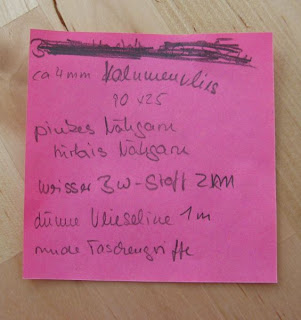 ca 4mm Volumenvlies
pinkes Nähgarn
türkis Nähgarn
weisser BW-Stoff 2
dünne Vlieseline 1m
runde Taschengriffe